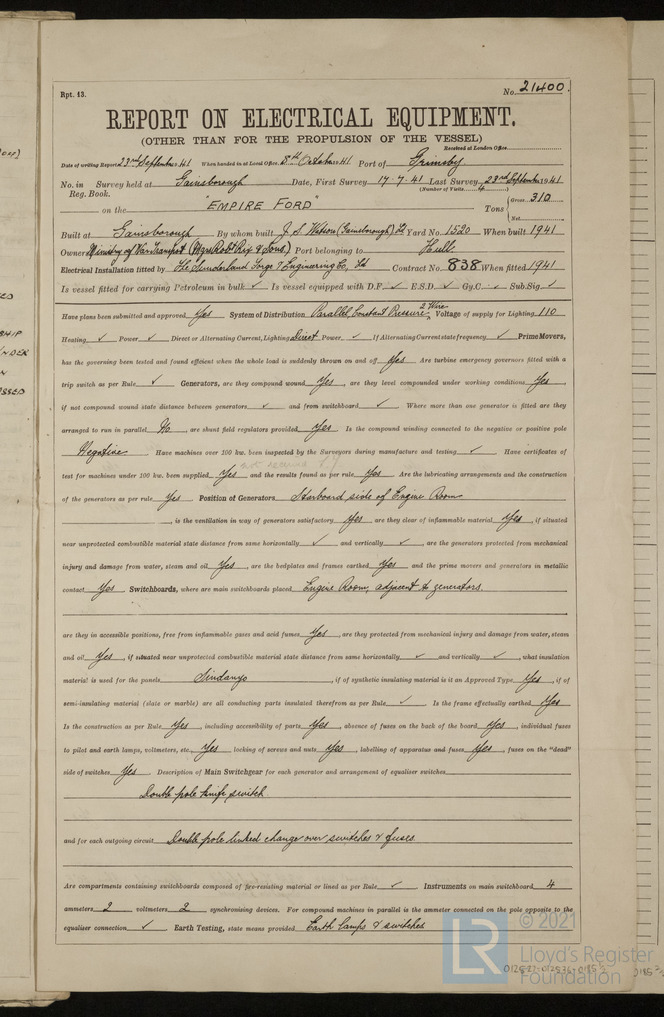 Rpt. 13.
No. 21400.
REPORT ON ELECTRICAL EQUIPMENT.
(OTHER THAN FOR THE PROPULSION OF THE VESSEL)
Received at London Office
Date of writing Report 23rd September 1941 When handed in at Local Office 8th October 1941 Port of Grimsby
No. in Survey held at Gainsborough Date, First Survey 17.7.41 Last Survey 23rd September 1941
Reg. Book. (Number of Visits 4)
on the "EMPIRE FORD" Tons Gross 310 Net
Built at Gainsborough By whom built J. S. Watson (Gainsborough) Ld Yard No. 1520 When built 1941
Owners Ministry of War Transport (Mgrs Robt Rix & Sons.) Port belonging to Hull
Electrical Installation fitted by The Sunderland Forge & Engineering Co, Ltd Contract No. 838 When fitted 1941
Is vessel fitted for carrying Petroleum in bulk ✓ Is vessel equipped with D.F. ✓ E.S.D. ✓ Gy.C. ✓ Sub.Sig. ✓
Have plans been submitted and approved Yes System of Distribution Parallel Constant Pressure 2 Wire Voltage of supply for Lighting 110
Heating ✓ Power ✓ Direct or Alternating Current, Lighting Direct Power ✓ If Alternating Current state frequency ✓ Prime Movers,
has the governing been tested and found efficient when the whole load is suddenly thrown on and off Yes Are turbine emergency governors fitted with a
trip switch as per Rule ✓ Generators, are they compound wound Yes, are they level compounded under working conditions Yes,
if not compound wound state distance between generators ✓ and from switchboard ✓ Where more than one generator is fitted are they
arranged to run in parallel No, are shunt field regulators provided Yes Is the compound winding connected to the negative or positive pole
Negative Have machines over 100 kw. been inspected by the Surveyors during manufacture and testing ✓ Have certificates of
test for machines under 100 kw. been supplied Yes and the results found as per rule Yes Are the lubricating arrangements and the construction
of the generators as per rule Yes Position of Generators Starboard side of Engine Room
, is the ventilation in way of generators satisfactory Yes are they clear of inflammable material Yes, if situated
near unprotected combustible material state distance from same horizontally ✓ and vertically ✓, are the generators protected from mechanical
injury and damage from water, steam and oil Yes, are the bedplates and frames earthed Yes and the prime movers and generators in metallic
contact Yes Switchboards, where are main switchboards placed Engine Room, adjacent to generators.
are they in accessible positions, free from inflammable gases and acid fumes Yes, are they protected from mechanical injury and damage from water, steam
and oil Yes, if situated near unprotected combustible material state distance from same horizontally ✓ and vertically ✓, what insulation
material is used for the panels Sindanyo, if of synthetic insulating material is it an Approved Type Yes, if of
semi-insulating material (slate or marble) are all conducting parts insulated therefrom as per Rule ✓ Is the frame effectually earthed Yes
Is the construction as per Rule Yes, including accessibility of parts Yes, absence of fuses on the back of the board Yes, individual fuses
to pilot and earth lamps, voltmeters, etc. Yes locking of screws and nuts Yes, labelling of apparatus and fuses Yes, fuses on the "dead"
side of switches Yes Description of Main Switchgear for each generator and arrangement of equaliser switches
Double pole knife switch
and for each outgoing circuit Double pole linked change over switches & fuses.
Are compartments containing switchboards composed of fire-resisting material or lined as per Rule ✓ Instruments on main switchboard 4
ammeters 2 voltmeters 2 synchronising devices. For compound machines in parallel is the ammeter connected on the pole opposite to the
equaliser connection ✓ Earth Testing, state means provided Earth lamps & switches
© 2021
LR
Lloyd's Register
Foundation